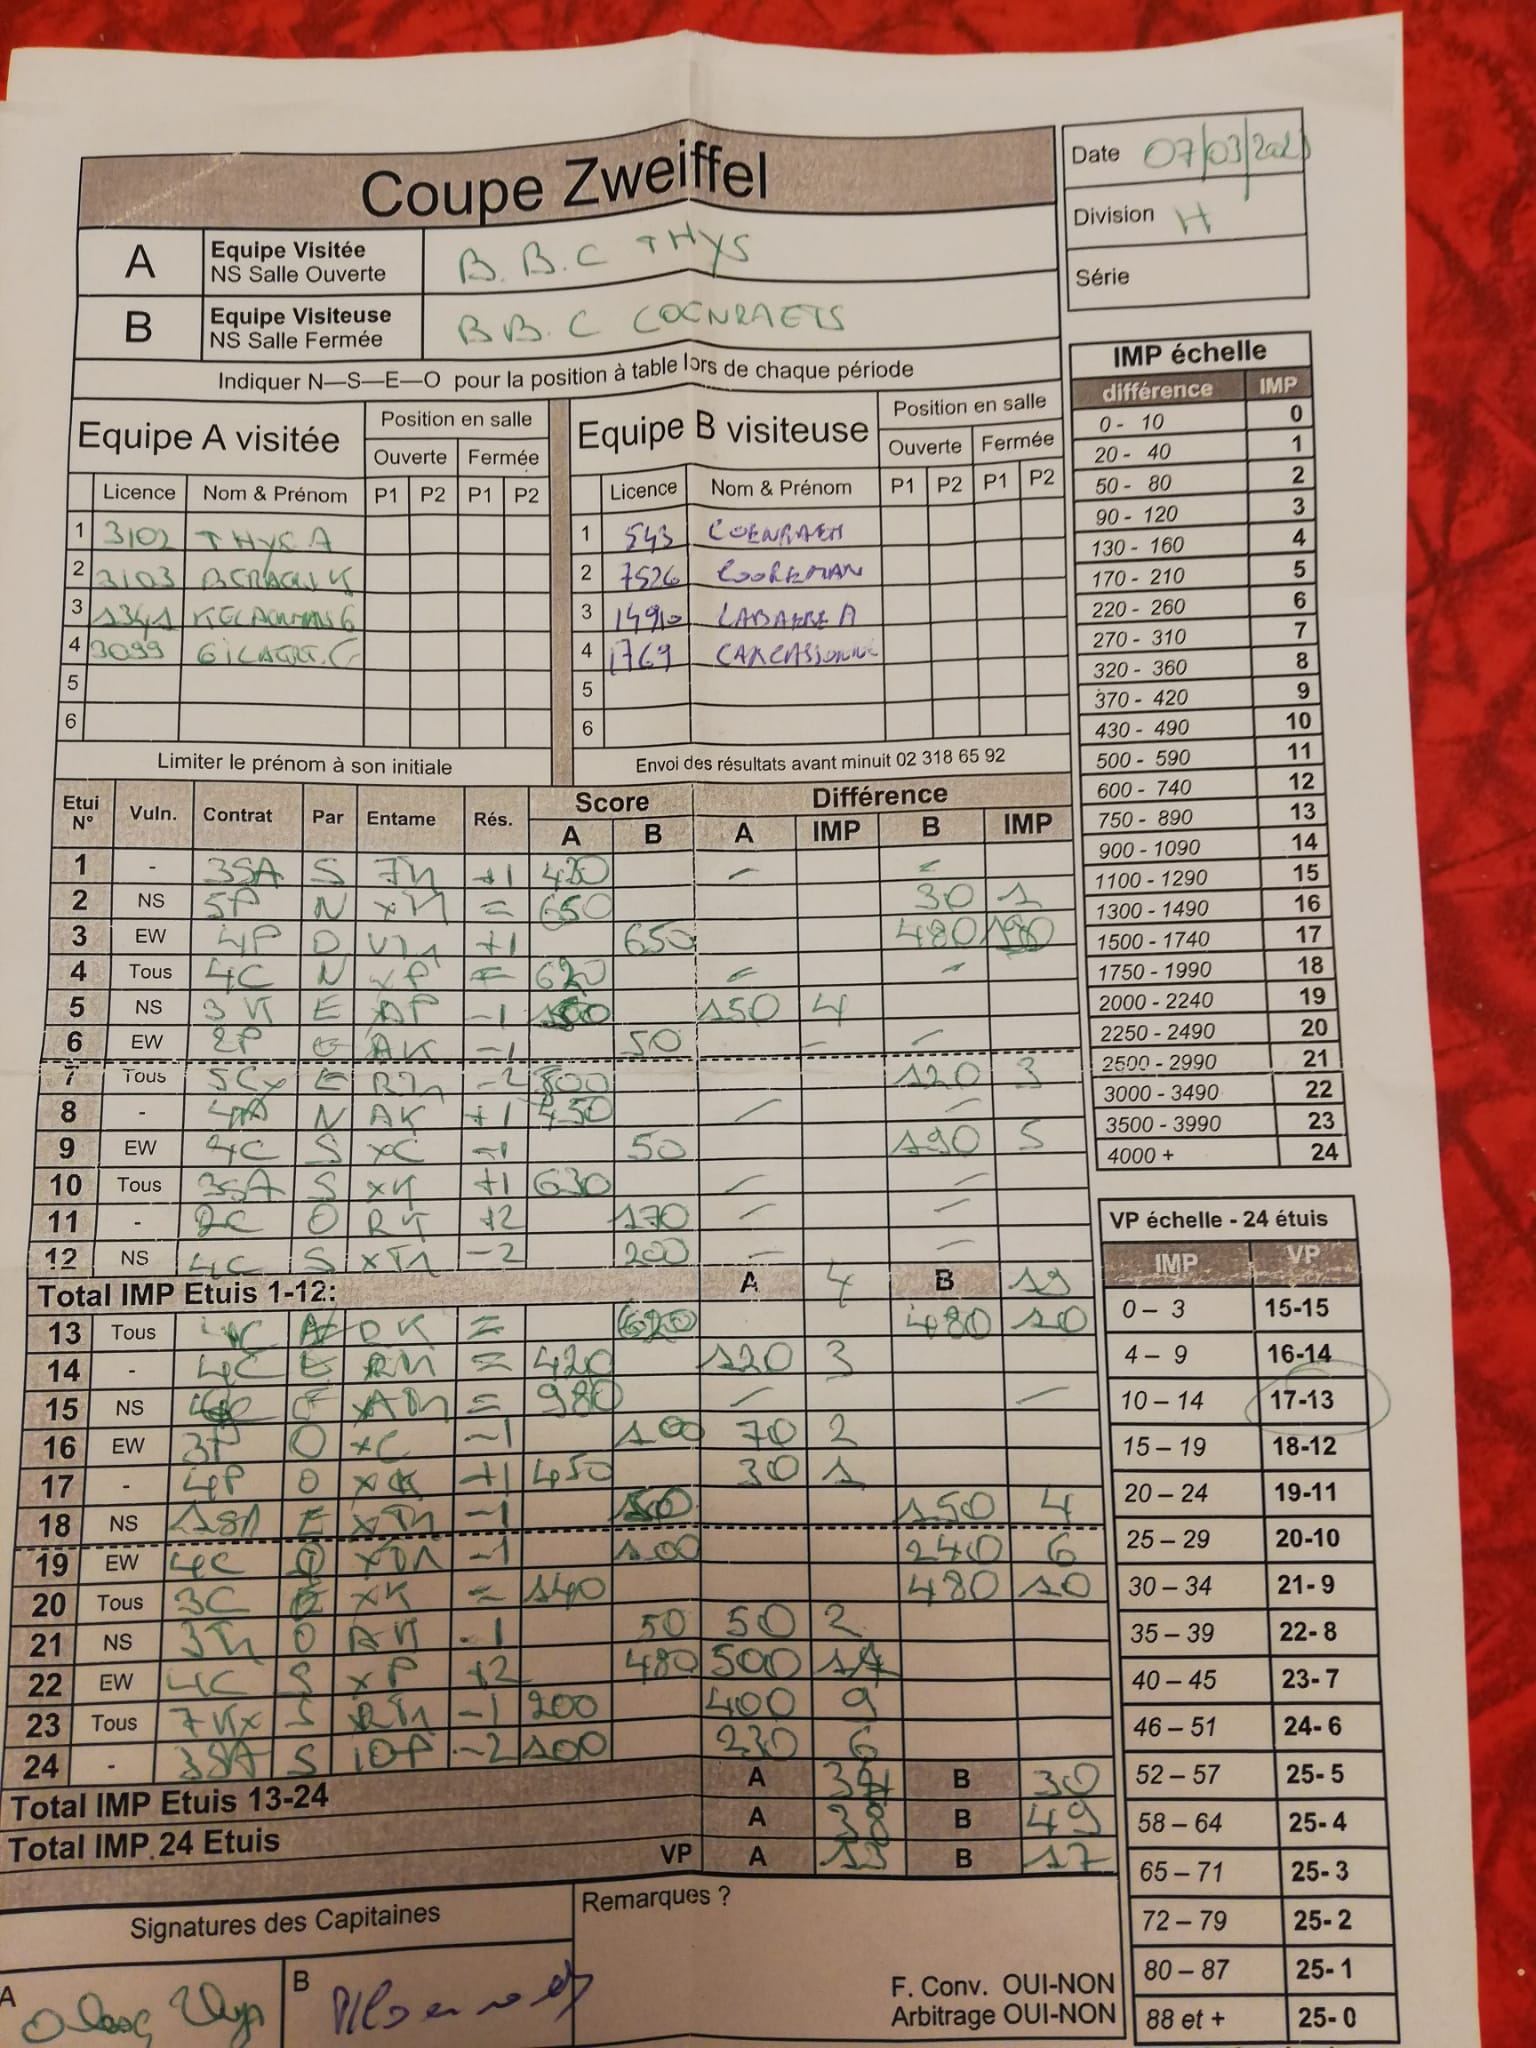 Coupe Zweiffel
Date 07/03/202
Division H
Série
A Equipe Visitée NS Salle Ouverte B.B.C THYS
B Equipe Visiteuse NS Salle Fermée B.B.C COENRAETS
Indiquer N—S—E—O pour la position à table lors de chaque période
Equipe A visitée Position en salle
Ouverte Fermée
Licence Nom & Prénom P1 P2 P1 P2
1 3102 THYS A
2 3103
3 1341
4 3099
5
6
Limiter le prénom à son initiale
Equipe B visiteuse Position en salle
Ouverte Fermée
Licence Nom & Prénom P1 P2 P1 P2
1 543 COENRAETS
2 7526 COOREMAN
3 1490 LABAERE A
4 1769 CARCASSONNE
5
6
Envoi des résultats avant minuit 02 318 65 92
Etui N° Vuln. Contrat Par Entame Rés. Score Différence
A B A IMP B IMP
1 - 3SA S 7 +1 430 – –
2 NS 5P N = 650 30 1
3 EW 4P O +1 650 480 10
4 Tous 4C N xP = 620 – –
5 NS 3 E AP -1 150 4
6 EW 2P E AK -1 50 – –
7 Tous 5Cx E -2 800 120 3
8 - N AK +1 430 – –
9 EW 4C S xC -1 50 190 5
10 Tous 3SA S xK +1 630 – –
11 - 2C O +2 170 – –
12 NS 4C S -2 200 – –
Total IMP Etuis 1-12: A 4 B 19
13 Tous 4C DK = 620 480 10
14 - 4C E = 420 120 3
15 NS E = 980 – –
16 EW 3P O xC -1 100 70 2
17 - 4P O xK +1 450 30 1
18 NS 1SA E -1 150 4
19 EW 4C O -1 100 240 6
20 Tous 3C E xK = 140 480 10
21 NS 3 O -1 50 50 2
22 EW 4C S xP +2 480 500 11
23 Tous S -1 200 400 9
24 - 3SA S 10P -2 100 230 6
Total IMP Etuis 13-24 A 34 B 30
Total IMP 24 Etuis A 38 B 49
VP A 13 B 17
Signatures des Capitaines
A
B
Remarques ?
F. Conv. OUI-NON
Arbitrage OUI-NON
IMP échelle
différence IMP
0 - 10 0
20 - 40 1
50 - 80 2
90 - 120 3
130 - 160 4
170 - 210 5
220 - 260 6
270 - 310 7
320 - 360 8
370 - 420 9
430 - 490 10
500 - 590 11
600 - 740 12
750 - 890 13
900 - 1090 14
1100 - 1290 15
1300 - 1490 16
1500 - 1740 17
1750 - 1990 18
2000 - 2240 19
2250 - 2490 20
2500 - 2990 21
3000 - 3490 22
3500 - 3990 23
4000 + 24
VP échelle - 24 étuis
IMP VP
0 – 3 15-15
4 – 9 16-14
10 – 14 17-13
15 – 19 18-12
20 – 24 19-11
25 – 29 20-10
30 – 34 21- 9
35 – 39 22- 8
40 – 45 23- 7
46 – 51 24- 6
52 – 57 25- 5
58 – 64 25- 4
65 – 71 25- 3
72 – 79 25- 2
80 – 87 25- 1
88 et + 25- 0